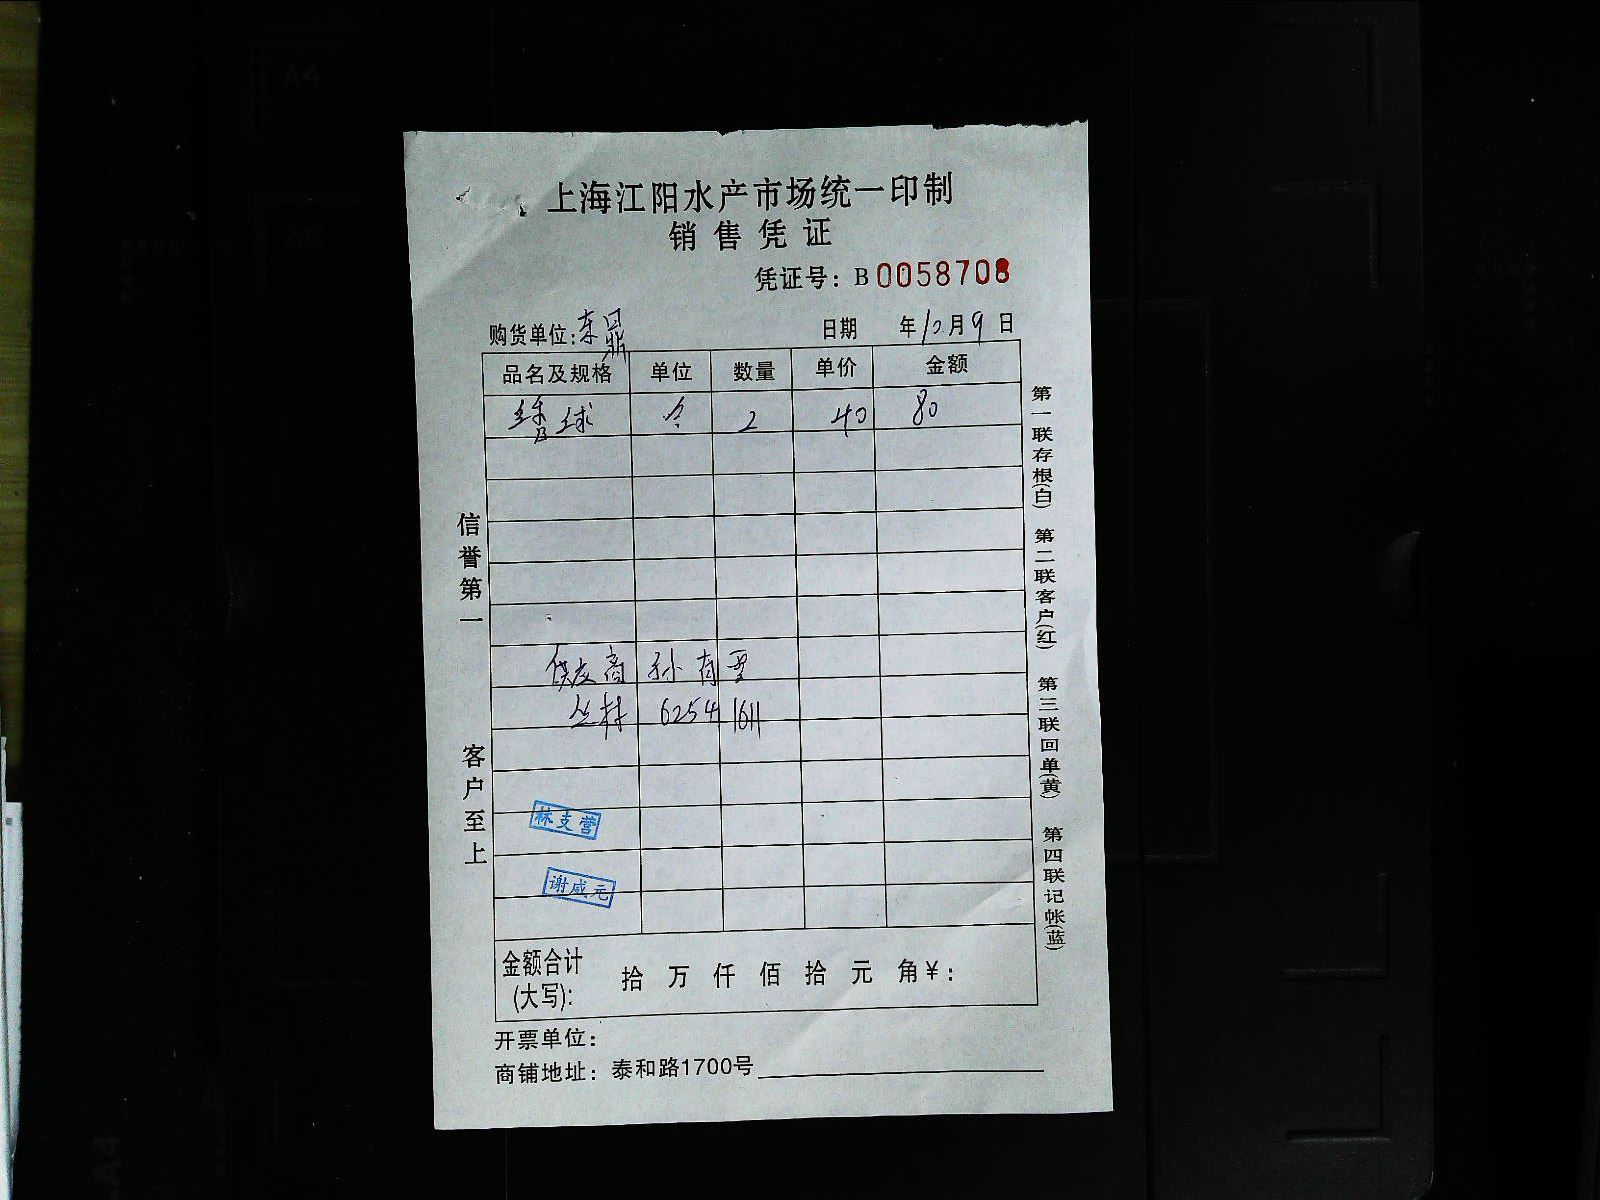 上海江阳水产市场统一印制
销售凭证
凭证号：B0058708
购货单位：东鼎 日期 年10月9日
品名及规格 单位 数量 单价 金额
球 个 2 40 80
供应商 孙有
丛林 62541611
林支营
谢咸元
金额合计(大写)： 拾 万 仟 佰 拾 元 角¥：
开票单位：
商铺地址：泰和路1700号
信誉第一 客户至上
第一联存根(白) 第二联客户(红) 第三联回单(黄) 第四联记帐(蓝)
A4
A5
A4